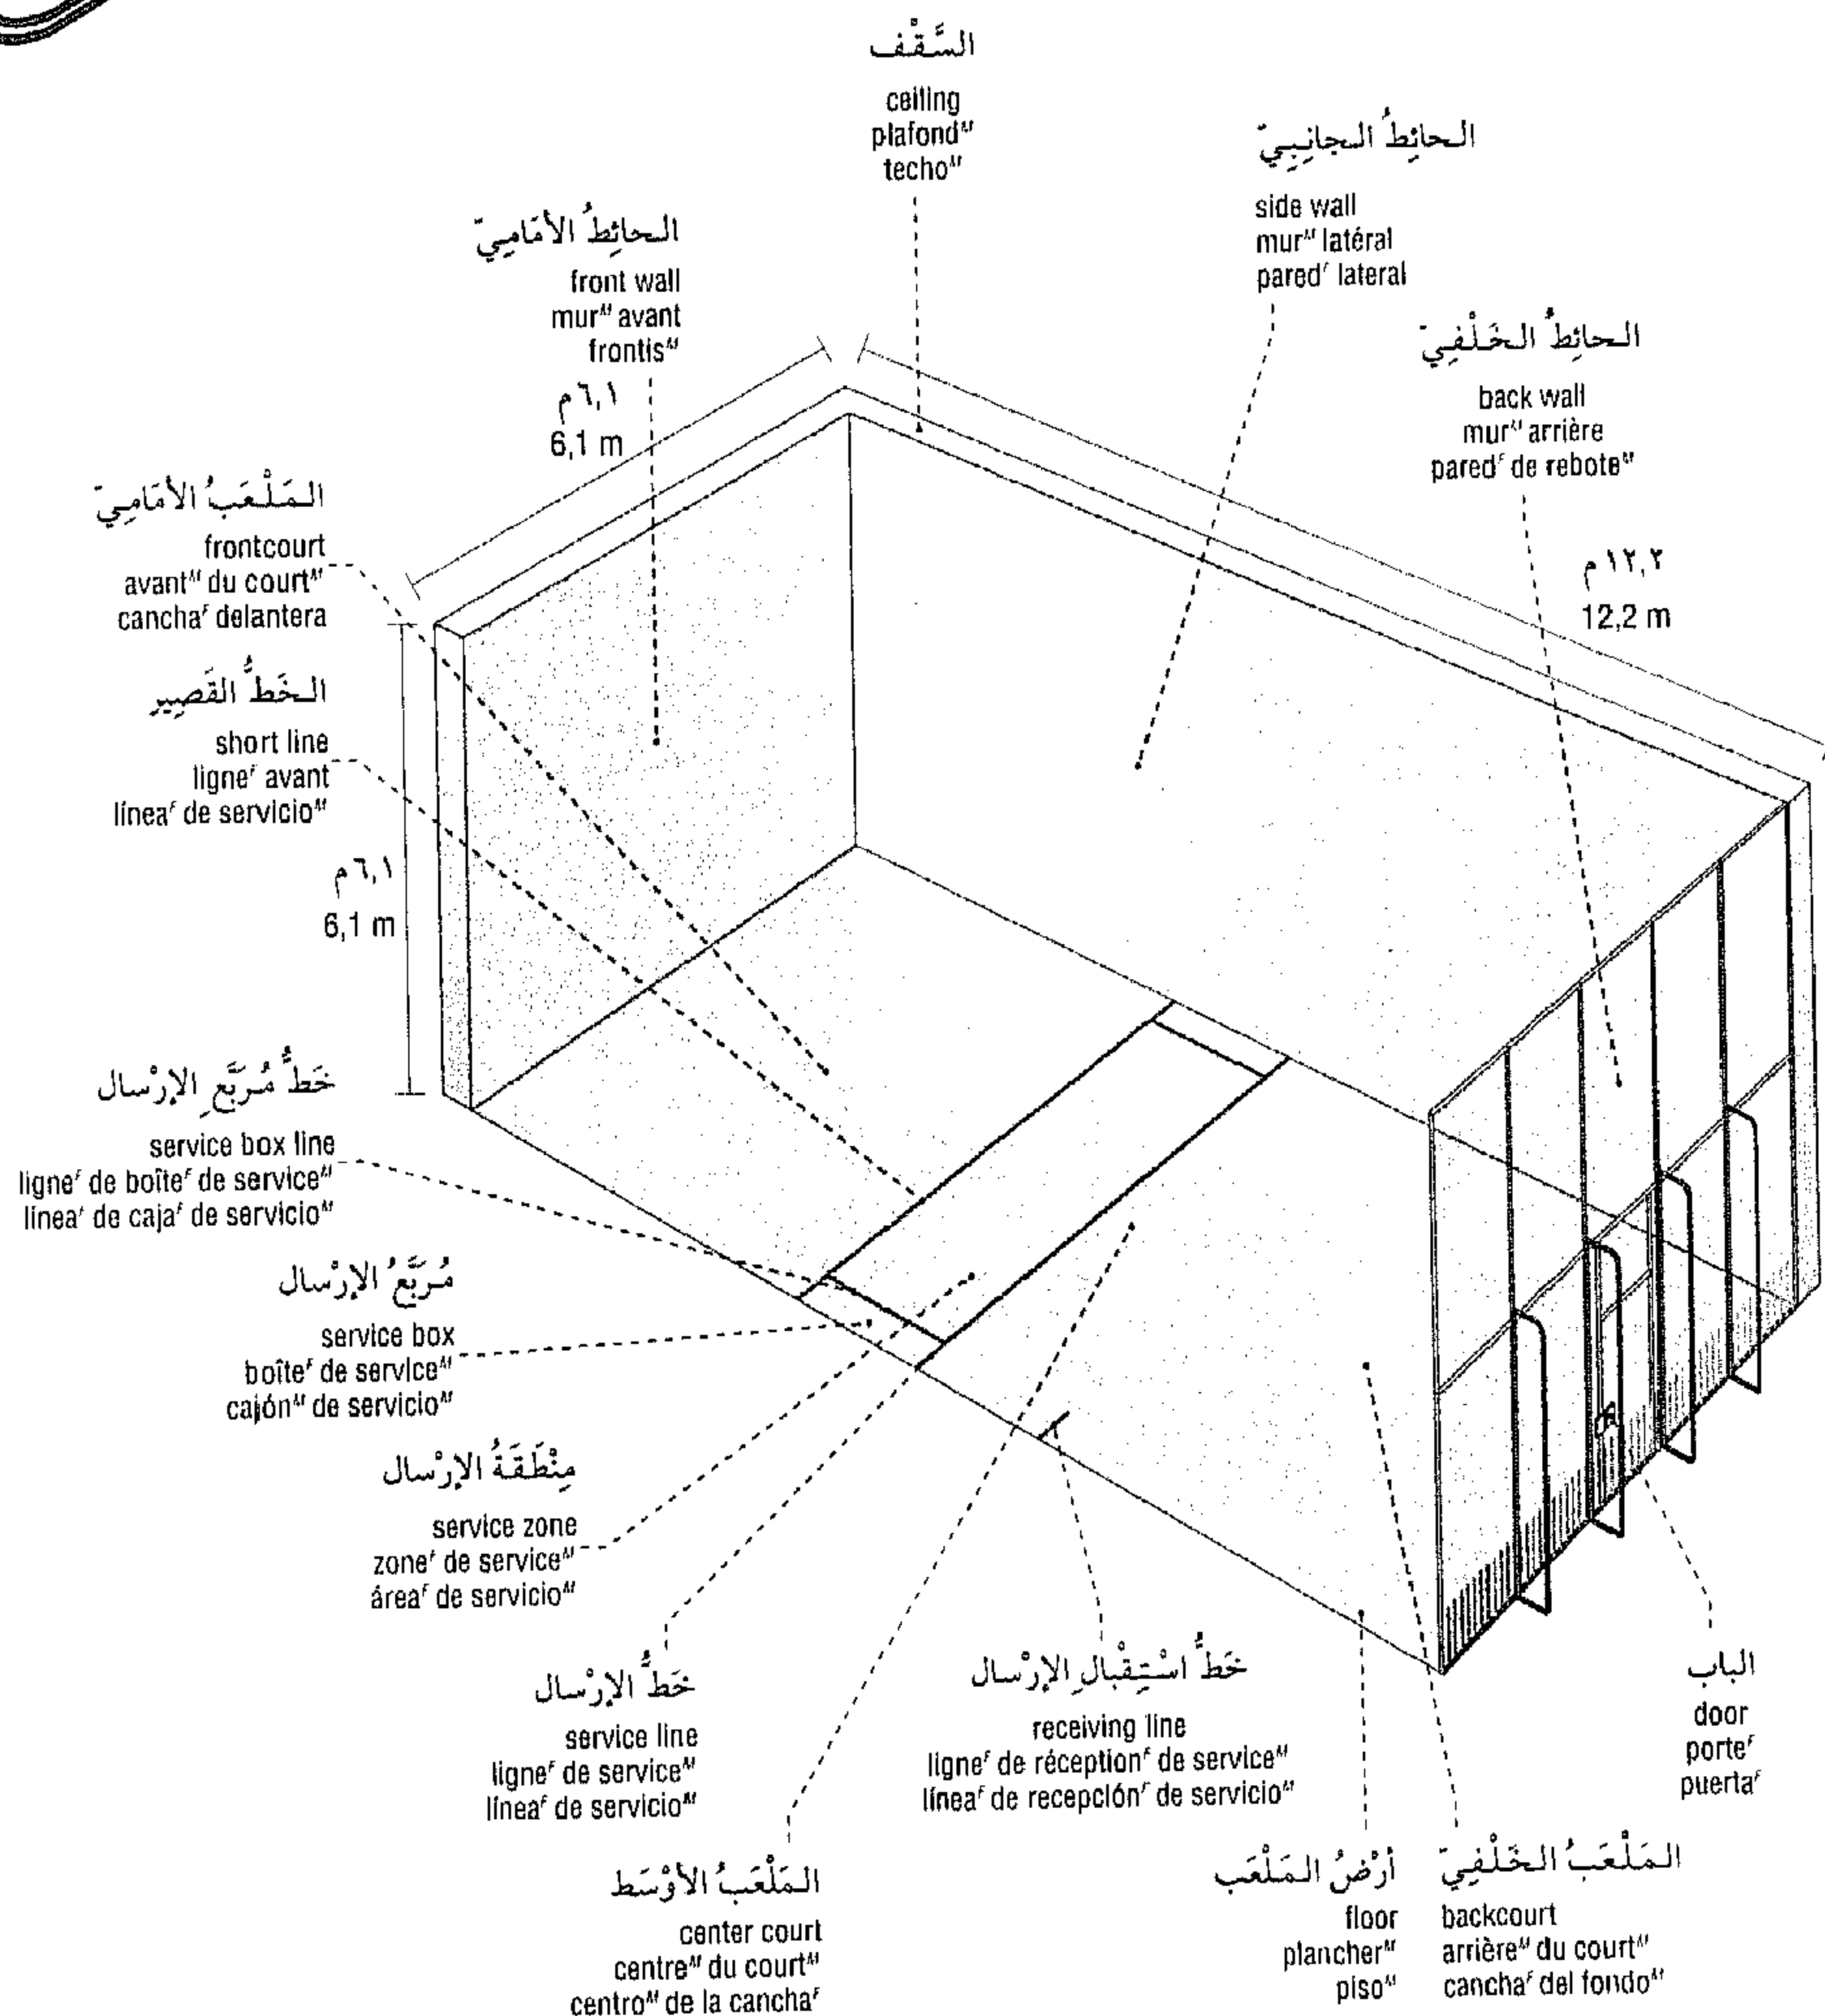 السَّقْف
ceiling
plafondᴹ
techoᴹ
الحائِطُ الجانِبِيّ
side wall
murᴹ latéral
paredᶠ lateral
الحائِطُ الأمَامِيّ
front wall
murᴹ avant
frontisᴹ
٦,١ م
6,1 m
الحائِطُ الخَلْفِيّ
back wall
murᴹ arrière
paredᶠ de reboteᴹ
١٢,٢ م
12,2 m
المَلْعَبُ الأمَامِيّ
frontcourt
avantᴹ du courtᴹ
canchaᶠ delantera
الخَطُّ القَصِير
short line
ligneᶠ avant
líneaᶠ de servicioᴹ
٦,١ م
6,1 m
خَطُّ مُرَبَّعِ الإرْسال
service box line
ligneᶠ de boîteᶠ de serviceᴹ
líneaᶠ de cajaᶠ de servicioᴹ
مُرَبَّعُ الإرْسال
service box
boîteᶠ de serviceᴹ
cajónᴹ de servicioᴹ
مِنْطَقَةُ الإرْسال
service zone
zoneᶠ de serviceᴹ
áreaᶠ de servicioᴹ
خَطُّ الإرْسال
service line
ligneᶠ de serviceᴹ
líneaᶠ de servicioᴹ
خَطُّ اسْتِقْبالِ الإرْسال
receiving line
ligneᶠ de réceptionᶠ de serviceᴹ
líneaᶠ de recepciónᶠ de servicioᴹ
الباب
door
porteᶠ
puertaᶠ
المَلْعَبُ الأوْسَط
center court
centreᴹ du courtᴹ
centroᴹ de la canchaᶠ
أرْضُ المَلْعَب
floor
plancherᴹ
pisoᴹ
المَلْعَبُ الخَلْفِيّ
backcourt
arrièreᴹ du courtᴹ
canchaᶠ del fondoᴹ